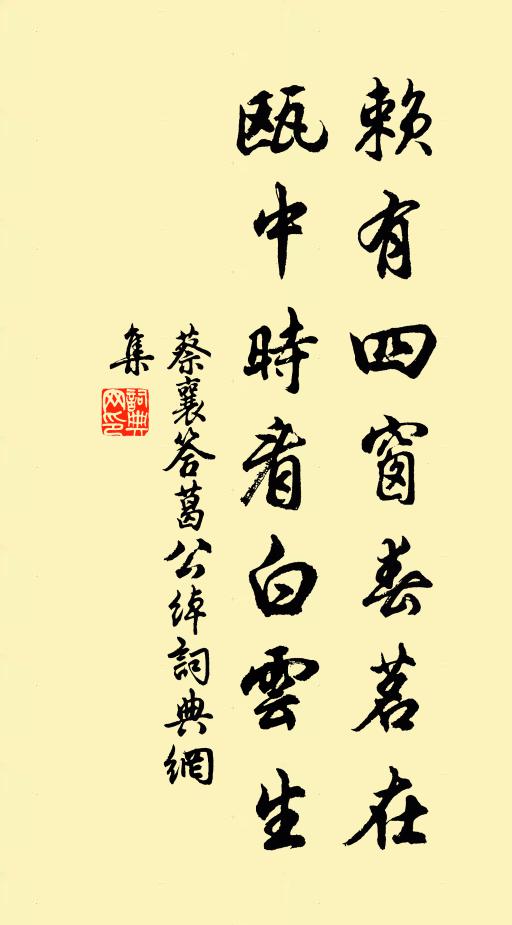 賴有四窗春茗在
甌中時看白雲生
蔡襄答葛公綽詞典網
集
詞典
网印